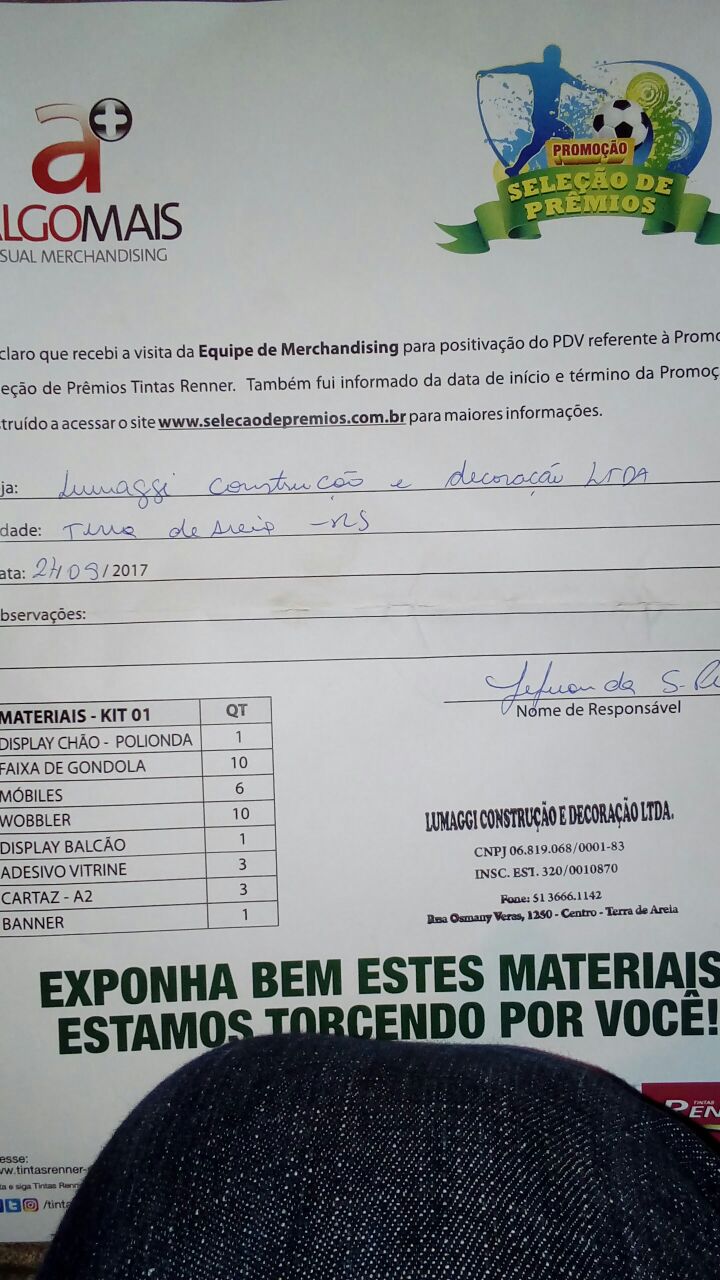 a+
ALGOMAIS
SUAL MERCHANDISING
PROMOÇÃO
SELEÇÃO DE
PRÊMIOS
claro que recebi a visita da Equipe de Merchandising para positivação do PDV referente à Promo
eção de Prêmios Tintas Renner. Também fui informado da data de início e término da Promoç
truído a acessar o site www.selecaodepremios.com.br para maiores informações.
ja: Lumaggi construção e decoração LTDA
dade: Terra de Areia - RS
ata: /2017
bservações:
da S.
Nome de Responsável
MATERIAIS - KIT 01 QT
DISPLAY CHÃO - POLIONDA 1
FAIXA DE GONDOLA 10
MÓBILES 6
WOBBLER 10
DISPLAY BALCÃO 1
ADESIVO VITRINE 3
CARTAZ - A2 3
BANNER 1
LUMAGGI CONSTRUÇÃO E DECORAÇÃO LTDA.
CNPJ 06.819.068/0001-83
INSC. EST. 320/0010870
Fone: 51 3666.1142
Rua Osmany Veras, 1250 - Centro - Terra de Areia
EXPONHA BEM ESTES MATERIAIS
ESTAMOS TORCENDO POR VOCÊ!
TINTAS
REN
esse:
ww.tintasrenner-
ta e siga Tintas Renn
/tinta